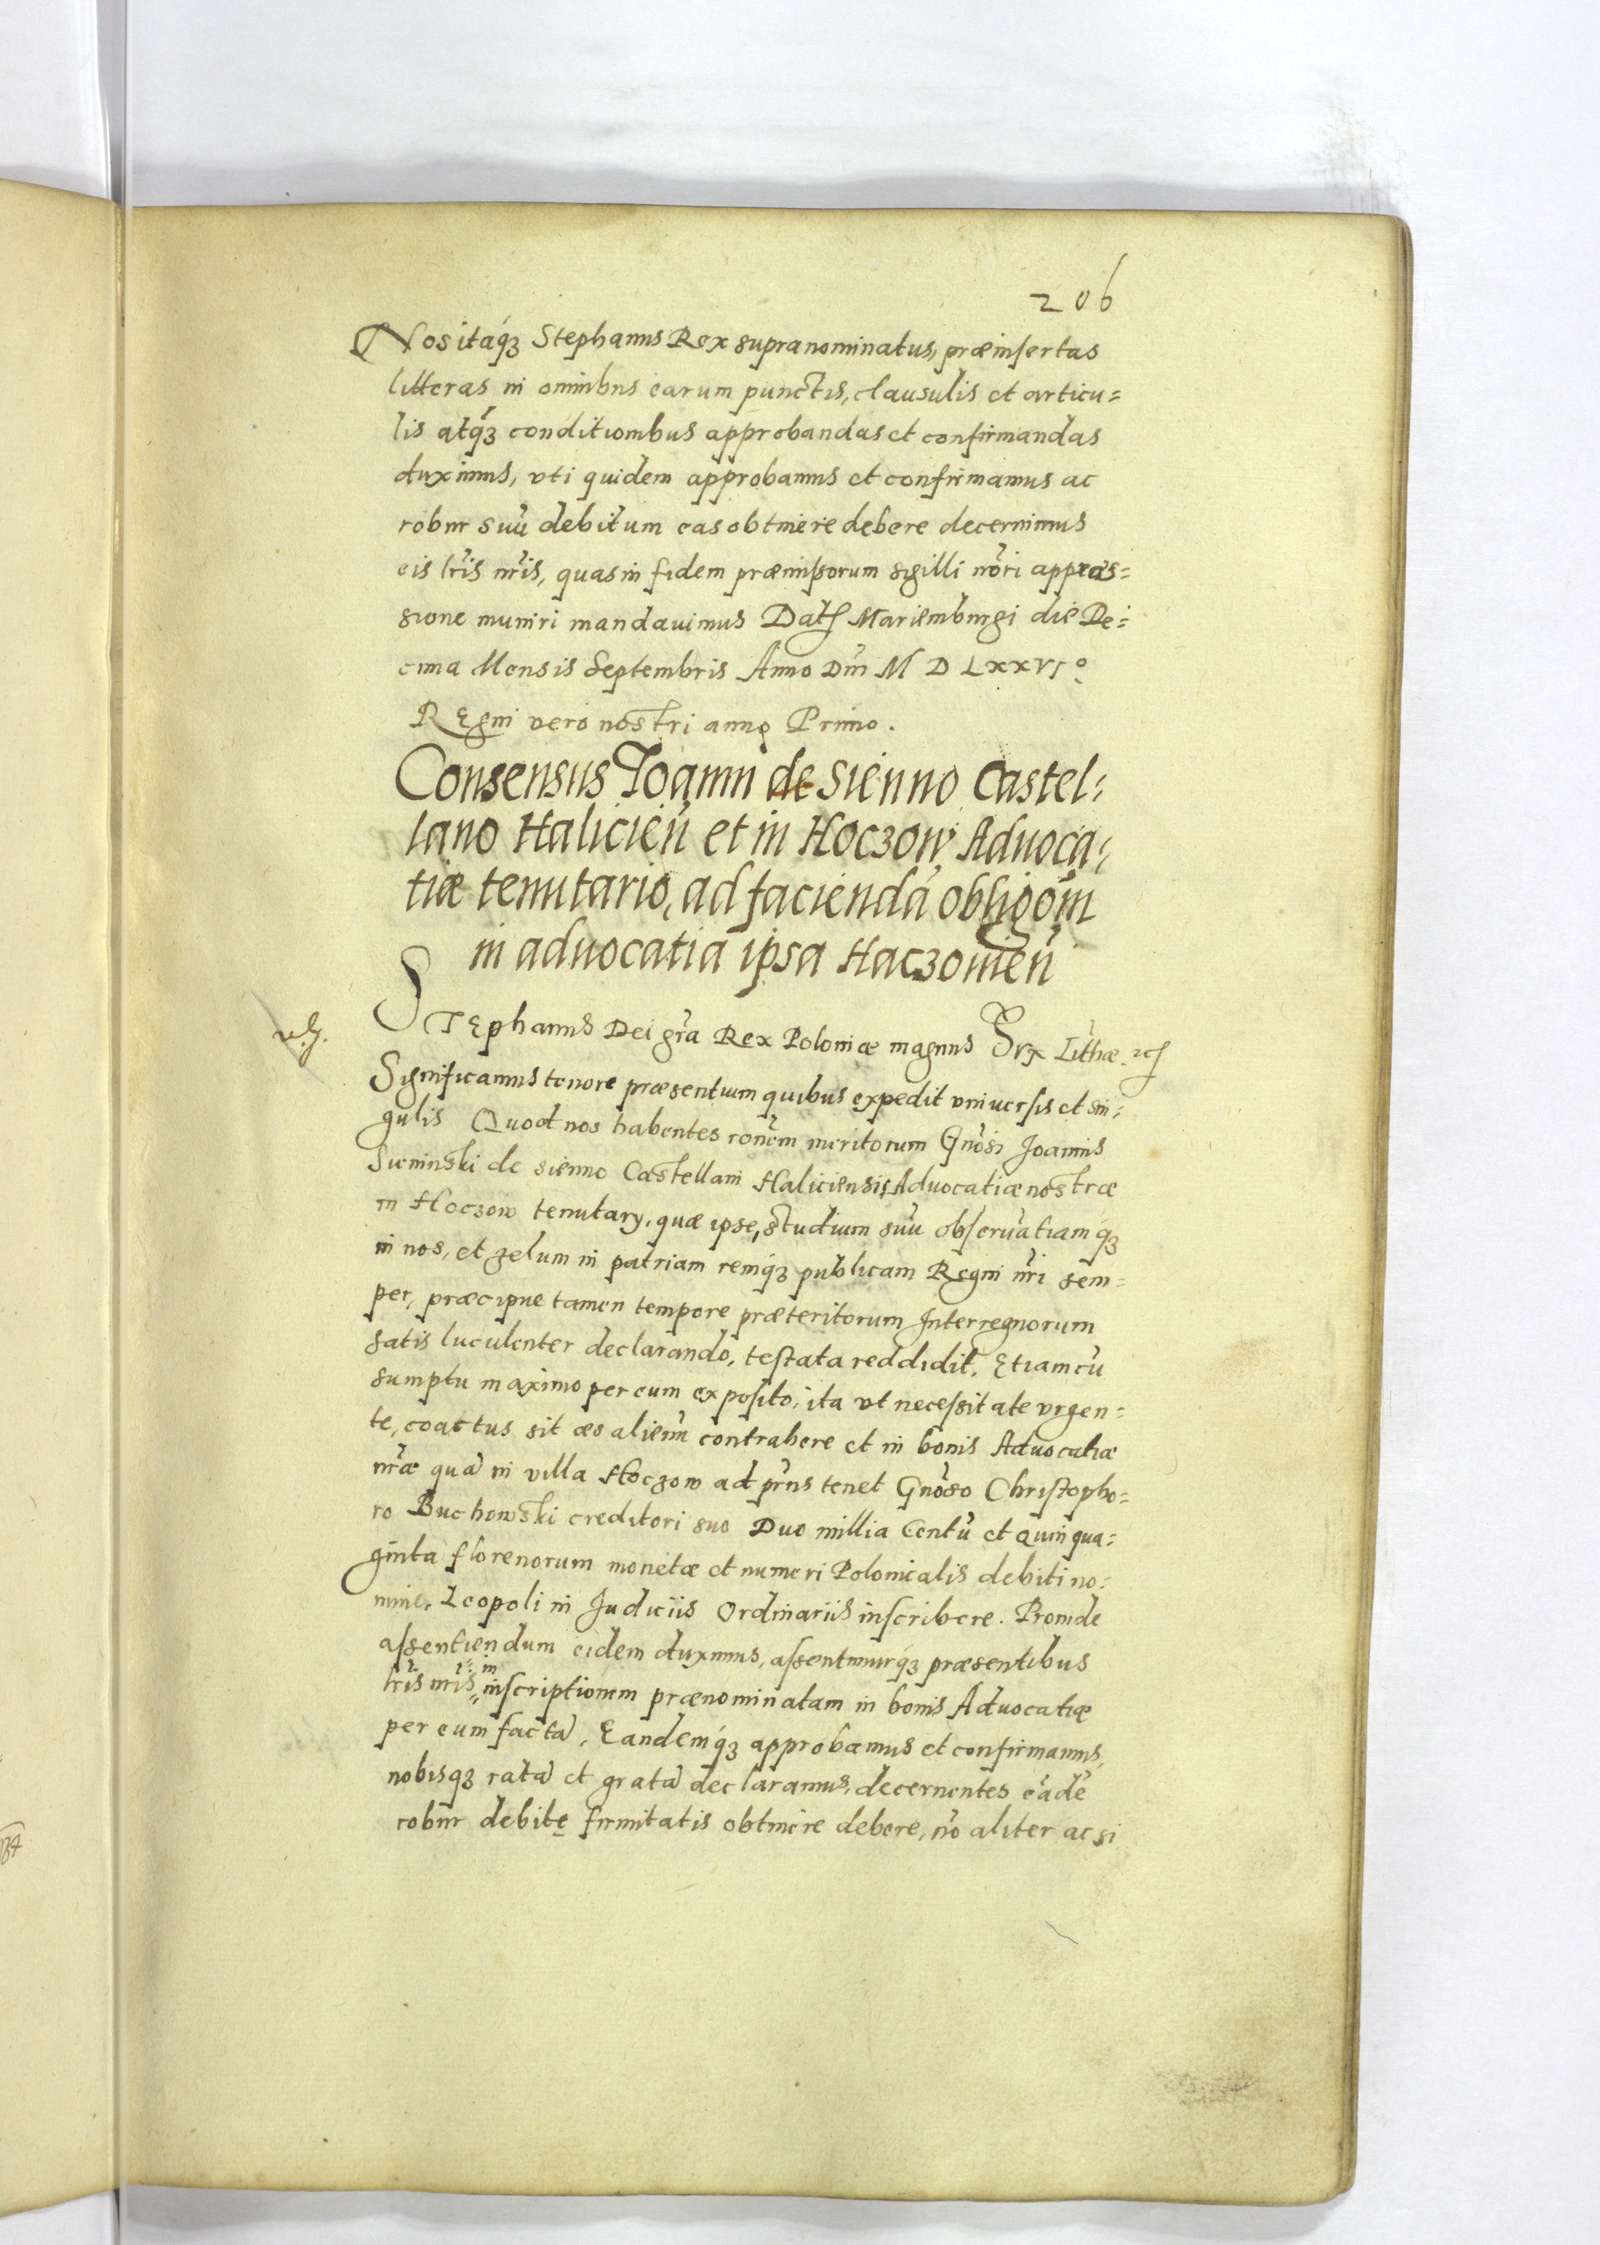 206
Nos itaq́ꝫ Stephanus Rex supranominatus, præinsertas
litteras in omnibus earum punctis, clausulis et articu⸗
lis atq́ꝫ conditionibus approbandas et confirmandas
duximus, vti quidem approbamus et confirmamus ac
robur suũ debitum eas obtinere debere decernimus
eis lr̃is nr̃is, quas in fidem præmissorum sigilli nõri appræs⸗
sione muniri mandauimus Datꝭ Mariemburgi die De⸗
cima Mensis Septembris Anno Dnĩ M D LXXVIº
REgni vero nostri anno Primo.
Consensus Joanni de Sienno Castel⸗
lano Halicieñ et in Hoczow Aduoca⸗
tiæ tenutario, ad faciendã obligõm
in aduocatia ipsa Haczouieñ
STEphanus Dei gr̃a Rex Poloniæ magnus Dux Lithæ. ꝛcꝭ
Significamus tenore præsentium quibus expedit vniuersis et sin⸗
gulis Quod nos habentes ronẽm meritorum Gnõsi Joannis
Sieninski de Sienno Castellani Haliciensis, Aduocatiæ nostræ
in Hoczow tenutarÿ, quæ ipse, studium suũ obseruãtiamq́ꝫ
in nos, et zelum in patriam remq́ꝫ publicam Regni nr̃i sem⸗
per, præcipue tamen tempore præteritorum Interregnorum
satis luculenter declarando, testata reddidit. Etiam cũ
sumptu maximo per eum exposito, ita vt necessitate vrgen⸗
te, coactus sit æs alienũ contrahere et in bonis Aduocatiæ
nr̃æ quã in villa Hoczow ad pr̃ns tenet Gnõso Christopho⸗
ro Buchowski creditori suo Duo millia Centũ et Quinqua⸗
ginta florenorum monetæ et numeri Polonicalis debiti no⸗
mine, Leopoli in Judiciis Ordinariis inscribere. Proinde
assentiendum eidem duximus, assentimurq́ꝫ præsentibus
in
lr̃is nr̃is inscriptionem prænominatam in bonis Aduocatiæ
per eum factã, Eandemq́ꝫ approbamus et confirmamus,
nobisqꝫ ratã et gratã declaramus, decernentes eãdẽ
robur debitę firmitatis obtinere debere, nõ aliter ac si